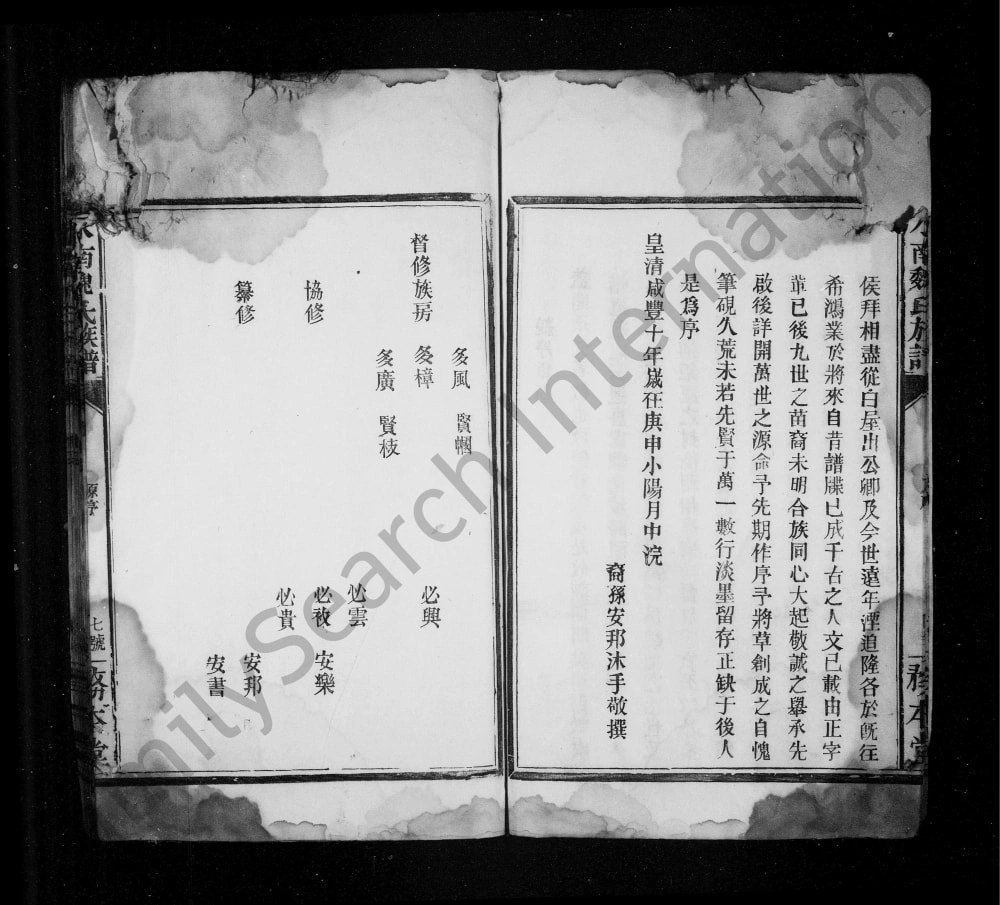 侯拜相盡從白屋出公卿及今世遠年湮追隆各於既往
希鴻業於將來自昔譜牒已成千古之人文已載由正字
軰已後九世之苗裔未明合族同心大起敬誠之舉承先
啟後詳開萬世之源命予先期作序予將草創成之自愧
筆硯久荒未若先賢于萬一數行淡墨留存正缺于後人
是爲序
皇清咸豐十年歲在庚申小陽月中浣
裔孫安邦沐手敬撰
南魏氏族譜
本堂
督修族房
 風 賢幗
 樟 必興
 廣 賢枝
協修
必雲
必 安樂
必貴
纂修
安邦
安書
南魏氏族譜
原序
七號
務本堂
Family Search International